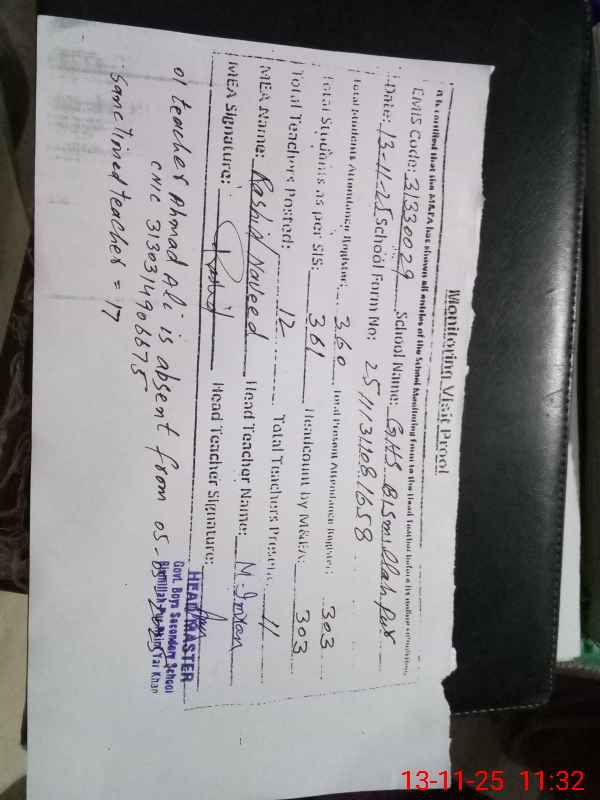 Monitoring Visit Proof
It is certified that the M&EA has shown all entries of the School Monitoring Form to the Head Teacher before its online submission
EMIS Code: 31330029 School Name: GHS Bismillah Pur
Date: 13-11-25 School Form No: 25111311081658
Total Students Attendance Register: 360 Total Present Attendance Register: 303
Total Students as per SIS: 361 Headcount by M&EA: 303
Total Teachers Posted: 12 Total Teachers Present: 11
MEA Name: Rashid Naveed Head Teacher Name: M. Imran
MEA Signature: Head Teacher Signature:
HEAD MASTER
Govt. Boys Secondary School
Bismillah Pur Rahim Yar Khan
01 teacher Ahmad Ali is absent from 05-
CNIC 3130314906675
Sanctioned teacher = 17
13-11-25 11:32